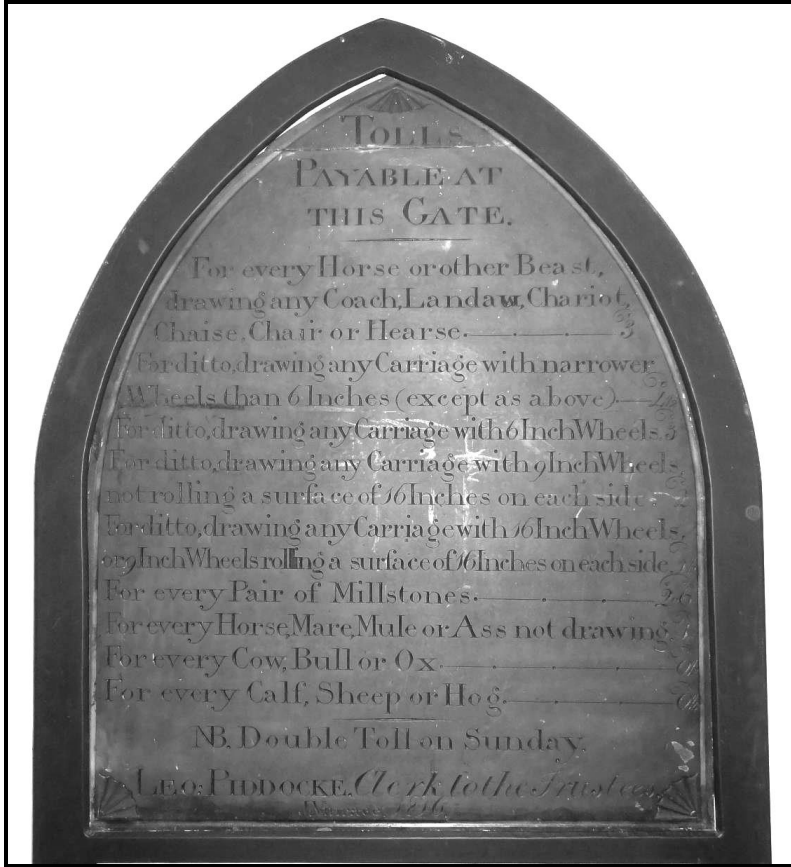 TOLLS
PAYABLE AT
THIS GATE.
For every Horse or other Beast,
drawing any Coach, Landaw, Chariot,
Chaise, Chair or Hearse. 3
For ditto, drawing any Carriage with narrower
Wheels than 6 Inches (except as above)
For ditto, drawing any Carriage with 6 Inch Wheels. 3
For ditto, drawing any Carriage with 9 Inch Wheels,
not rolling a surface of 16 Inches on each side
For ditto, drawing any Carriage with 16 Inch Wheels,
or 9 Inch Wheels rolling a surface of 16 Inches on each side
For every Pair of Millstones. 2
For every Horse, Mare, Mule or Ass not drawing
For every Cow, Bull or Ox
For every Calf, Sheep or Hog.
NB. Double Toll on Sunday.
LEO: PIDDOCKE, Clerk to the Trustees